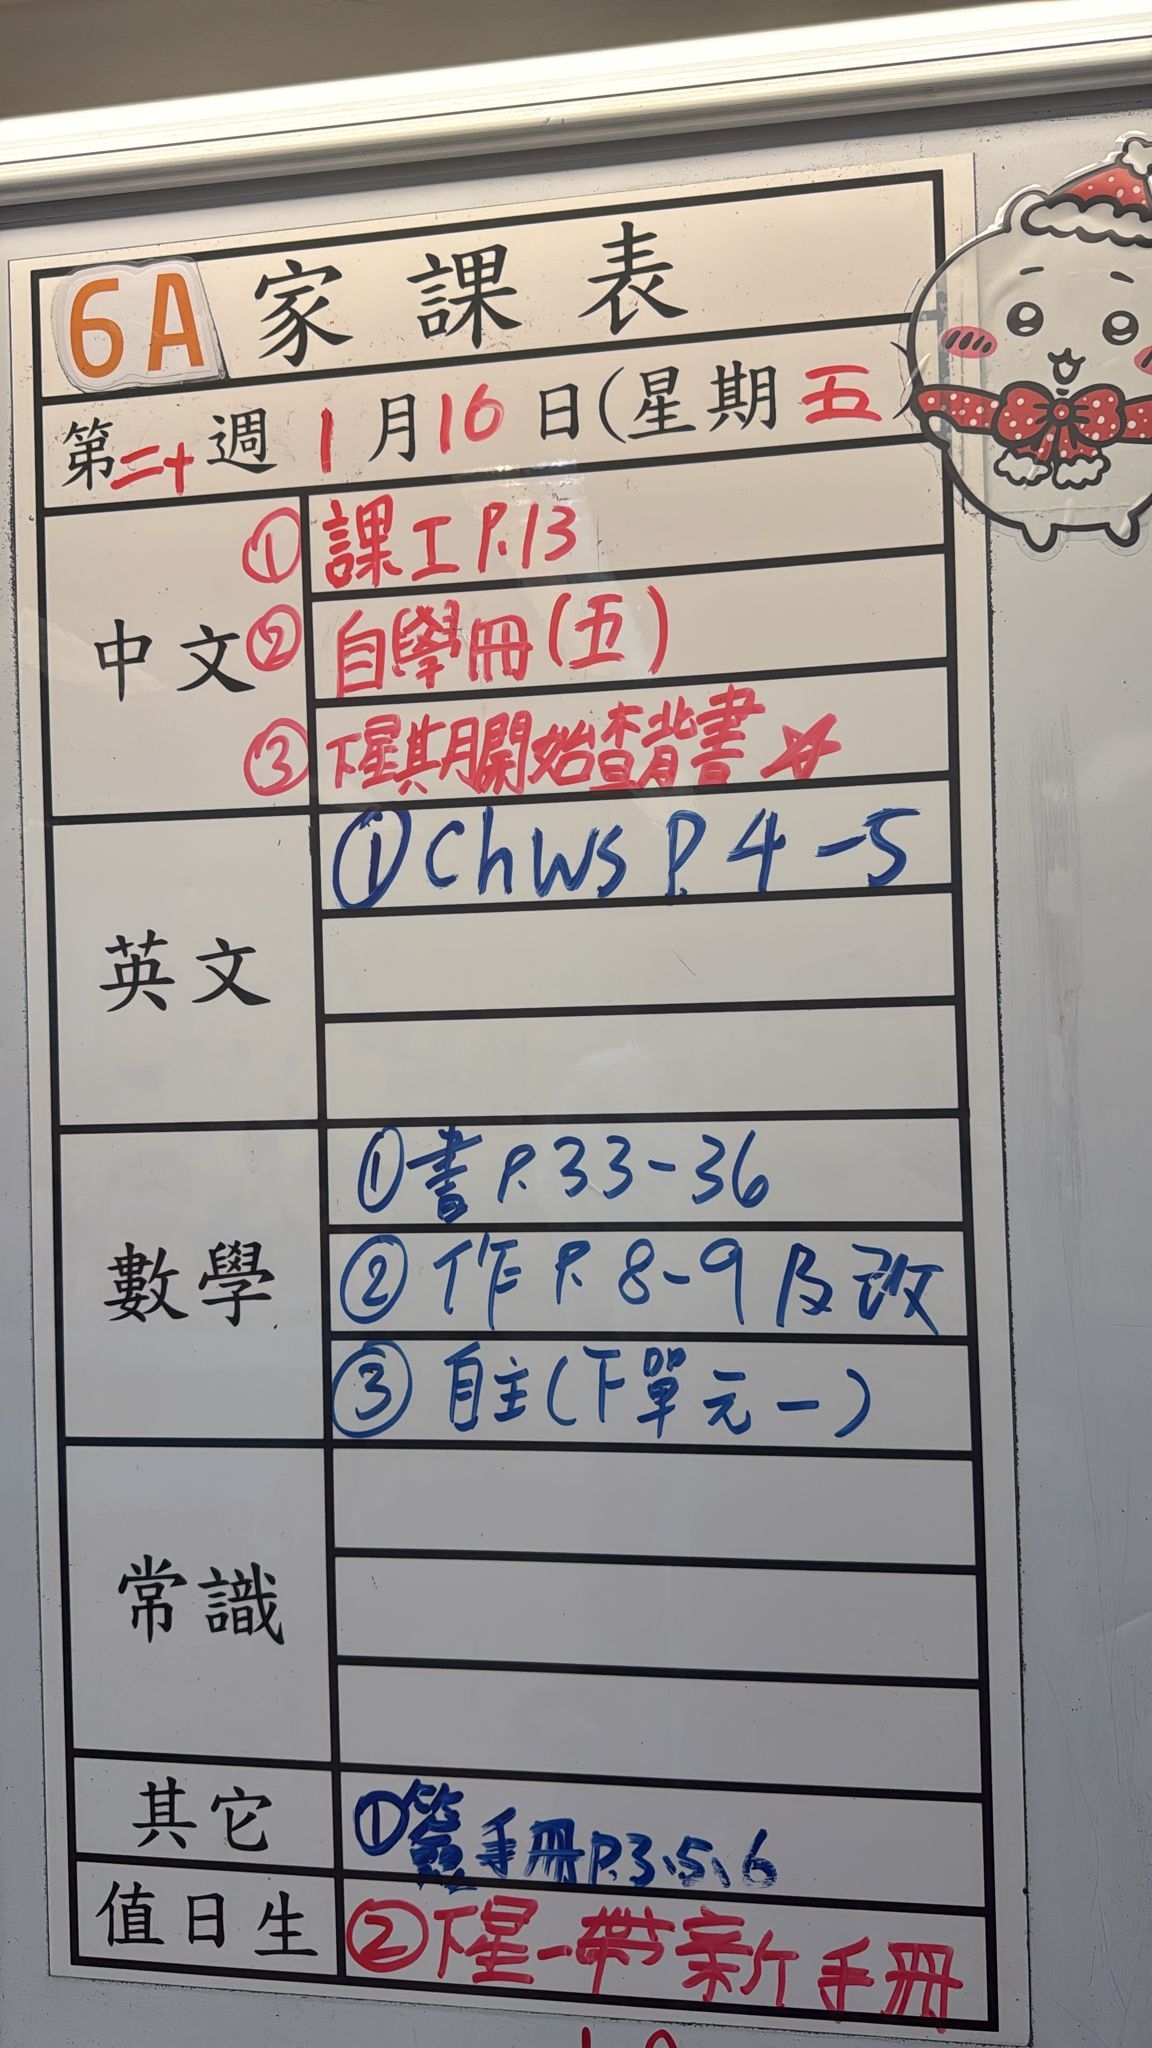 6A 家課表
第二十週 1月16日(星期五)
中文
① 課工 P.13
② 自學冊(五)
③ 下星期開始查背書
英文
① Ch WS P.4-5
數學
① 書 P.33-36
② 作 P.8-9及改
③ 自主(下單元一)
常識
其它
① 簽手冊 P.3、5、6
值日生
② 下星一帶新手冊